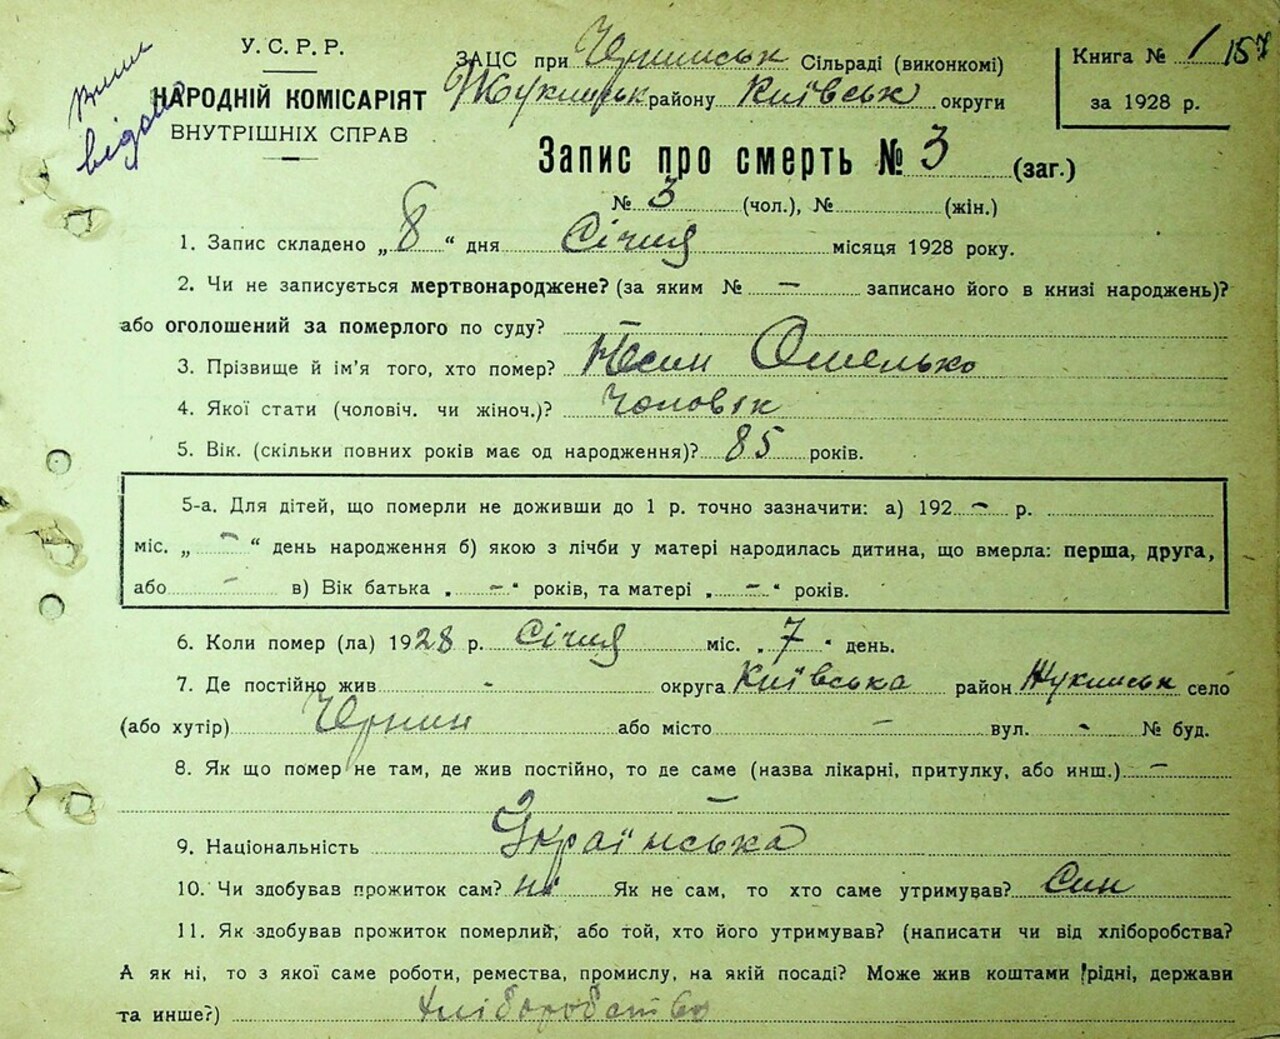 У. С. Р. Р.
НАРОДНІЙ КОМІСАРІЯТ
ВНУТРІШНІХ СПРАВ
ЗАЦС при Чернинськ Сільраді (виконкомі)
Жукинськ району Київськ округи
Книга № 1 157
за 1928 р.
Запис про смерть № 3 (заг.)
№ 3 (чол.), № (жін.)
1. Запис складено „ 8 “ дня Січня місяця 1928 року.
2. Чи не записується мертвонароджене? (за яким № — записано його в книзі народжень)?
або оголошений за померлого по суду? —
3. Прізвище й ім'я того, хто помер? Омелько
4. Якої стати (чоловіч. чи жіноч.)? Чоловік
5. Вік. (скільки повних років має од народження)? 85 років.
5-а. Для дітей, що померли не доживши до 1 р. точно зазначити: а) 192 - р.
міс. „ - “ день народження б) якою з лічби у матері народилась дитина, що вмерла: перша, друга,
або - в) Вік батька „ - “ років, та матері „ - “ років.
6. Коли помер (ла) 1928 р. Січня міс. „ 7 “ день.
7. Де постійно жив - округа Київська район Жукинськ село
(або хутір) Чернин або місто — вул. - № буд.
8. Як що помер не там, де жив постійно, то де саме (назва лікарні, притулку, або инш.) —
—
9. Національність Українська
10. Чи здобував прожиток сам? ні Як не сам, то хто саме утримував? Син
11. Як здобував прожиток померлий, або той, хто його утримував? (написати чи від хліборобства?
А як ні, то з якої саме роботи, ремества, промислу, на якій посаді? Може жив коштами рідні, держави
та инше?) Хліборобство